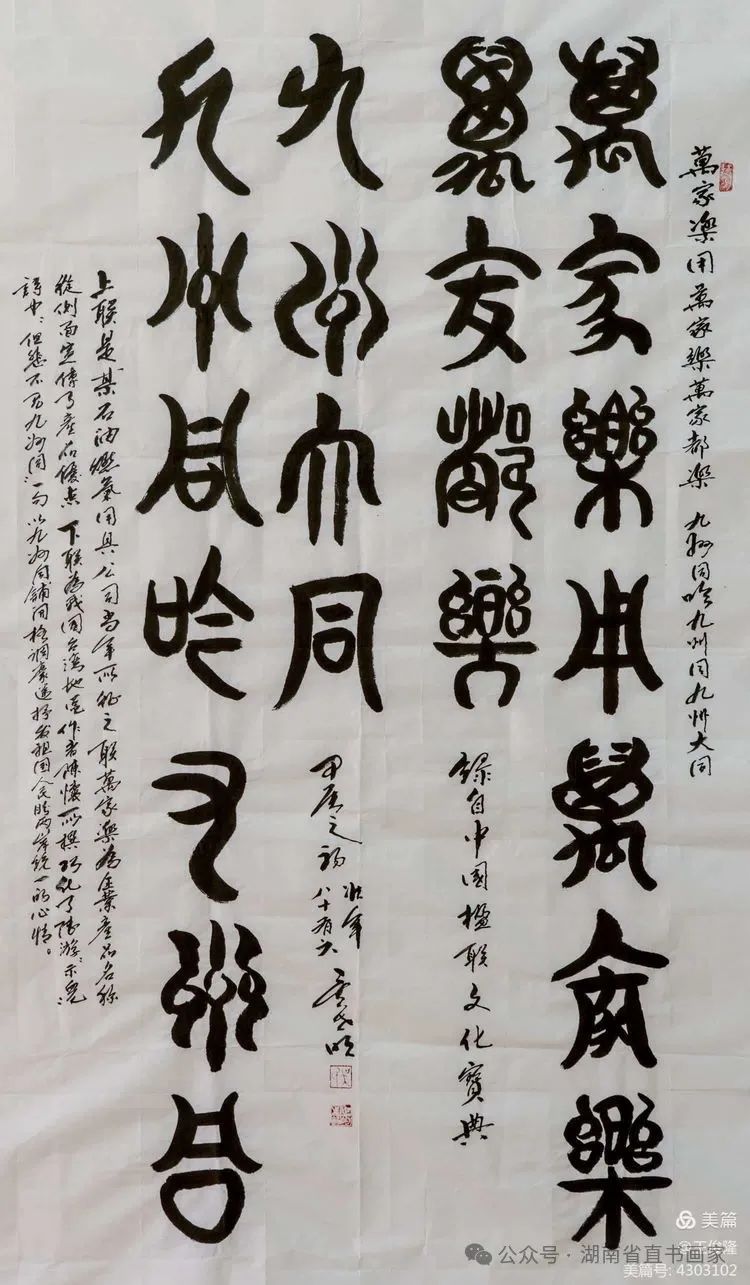 萬家樂用萬家樂萬家都樂 九州同吟九州同九州大同
萬家樂用萬家樂
萬家都樂
錄自中國楹联文化寶典
九州大同
甲辰之初
八十有六
九州同吟九州同
上联是某石油燃氣用具公司当年所征之联萬家樂為企業產品名称
從側面宣傳了產品優点 下联為我國台灣地區作者陳懷所撰巧化了陸游“示兒”
詩中“但悲不見九州同”一句以九州同鋪開格調豪邁抒發祖國人民盼两岸統一的心情。
美篇
@王俊隆
公众号 · 湖南省直书画家
美篇号: 4303102